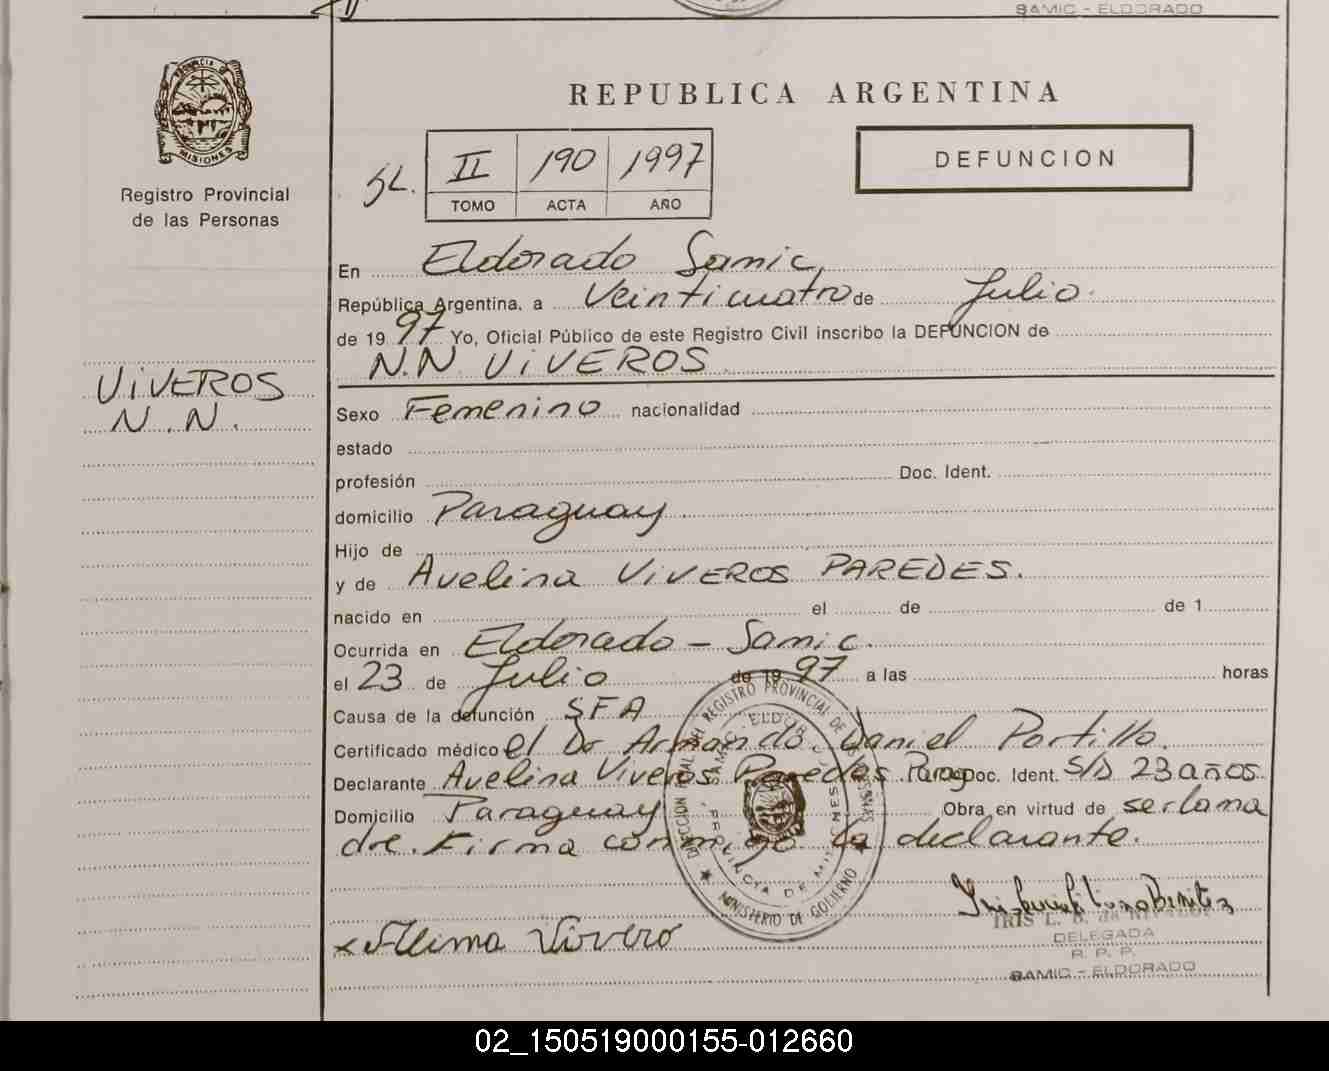 SAMIC - ELDORADO
PROVINCIA DE
MISIONES
Registro Provincial
de las Personas
REPUBLICA ARGENTINA
SL. II 190 1997
TOMO ACTA AÑO
DEFUNCION
En Eldorado Samic,
República Argentina, a Veinticuatro de Julio.
de 1997 Yo, Oficial Público de este Registro Civil inscribo la DEFUNCION de
N.N VIVEROS
VIVEROS
N.N.
Sexo Femenino nacionalidad
estado
profesión Doc. Ident.
domicilio Paraguay
Hijo de
y de Avelina VIVEROS PAREDES.
nacido en el de de 1
Ocurrida en Eldorado - Samic.
el 23 de Julio de 1997 a las horas
Causa de la defunción SFA
Certificado médico el Dr Armando Daniel Portillo.
Declarante Avelina Viveros Paredes Parag Doc. Ident. S/D 23 años
Domicilio Paraguay Obra en virtud de ser la ma
dre. Firma conmigo la declarante.
DIRECCION GRAL. DEL REGISTRO PROVINCIAL DE LAS PERSONAS
MINISTERIO DE GOBIERNO
SAMIC - ELDORADO
PROVINCIA DE MISIONES
x Viveros
Benitez
IRIS L. B. de
DELEGADA
R. P. P.
SAMIC - ELDORADO
02_150519000155-012660